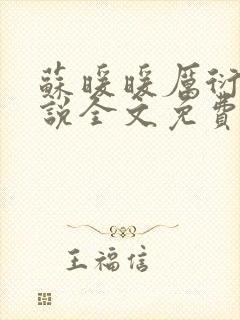 蘇暖暖厲衍
說全文免費
王福信